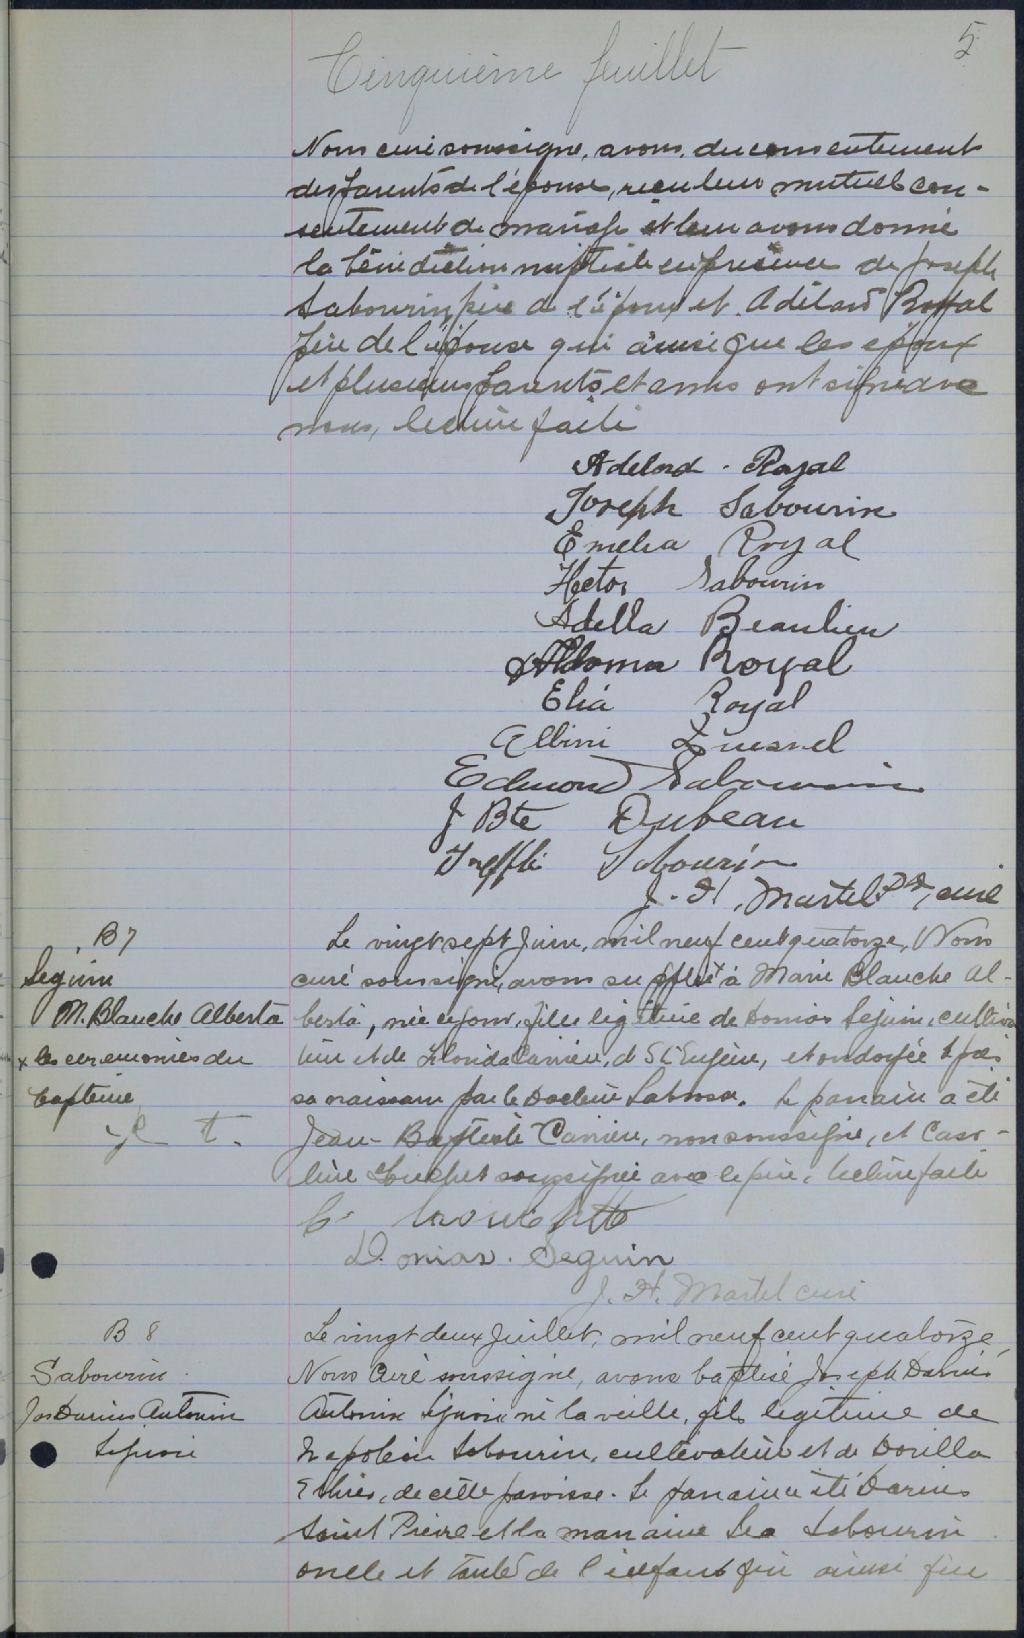 5
Cinquième feuillet
Nous curé soussigné, avons, du consentement
des parents de l'épouse, reçu leur mutuel con-
sentement de mariage et leur avons donné
la bénédiction nuptiale en présence de Joseph
Sabourin père de l'époux et Adélard Royal
père de l'épouse qui ainsi que les époux
et plusieurs parents et amis ont signé avec
nous, lecture faite
Adelard Royal
Joseph Sabourin
Emelia Royal
Hector Sabourin
Adella Beaulieu
Aldoma Royal
Elia Royal
Albini Quesnel
Edmond Sabourin
J Bte Dubeau
Treffle Sabourin
J. H. Martel Ptr, curé
B 7
Seguin
M. Blanche Alberta
x les ceremonies du
bapteme
Le vingt sept Juin, mil neuf cent quatorze, Nous
curé soussigné, avons suppléé x à Marie Blanche Al-
berta, née ce jour, fille légitime de Domias Séguin, cultiva
teur et de Florida Carrière, de St Eugène, et ondoyée après
sa naissance par le Docteur Labrosse. Le parrain a été
Jean-Baptiste Carrière, non soussigné, et
soussignée avec le père, lecture faite
Domias Seguin
J. H. Martel curé
B 8
Sabourin
Jos Darius Antonin
Le vingt deux Juillet, mil neuf cent quatorze,
Nous Curé soussigné, avons baptisé Joseph Darius
Antonin né la veille, fils légitime de
Napoléon Sabourin, cultivateur et de Dorilla
Ethier, de cette paroisse. Le parrain a été Darius
Saint Pierre et la marraine Léa Sabourin
oncle et tante de l'enfant qui ainsi que